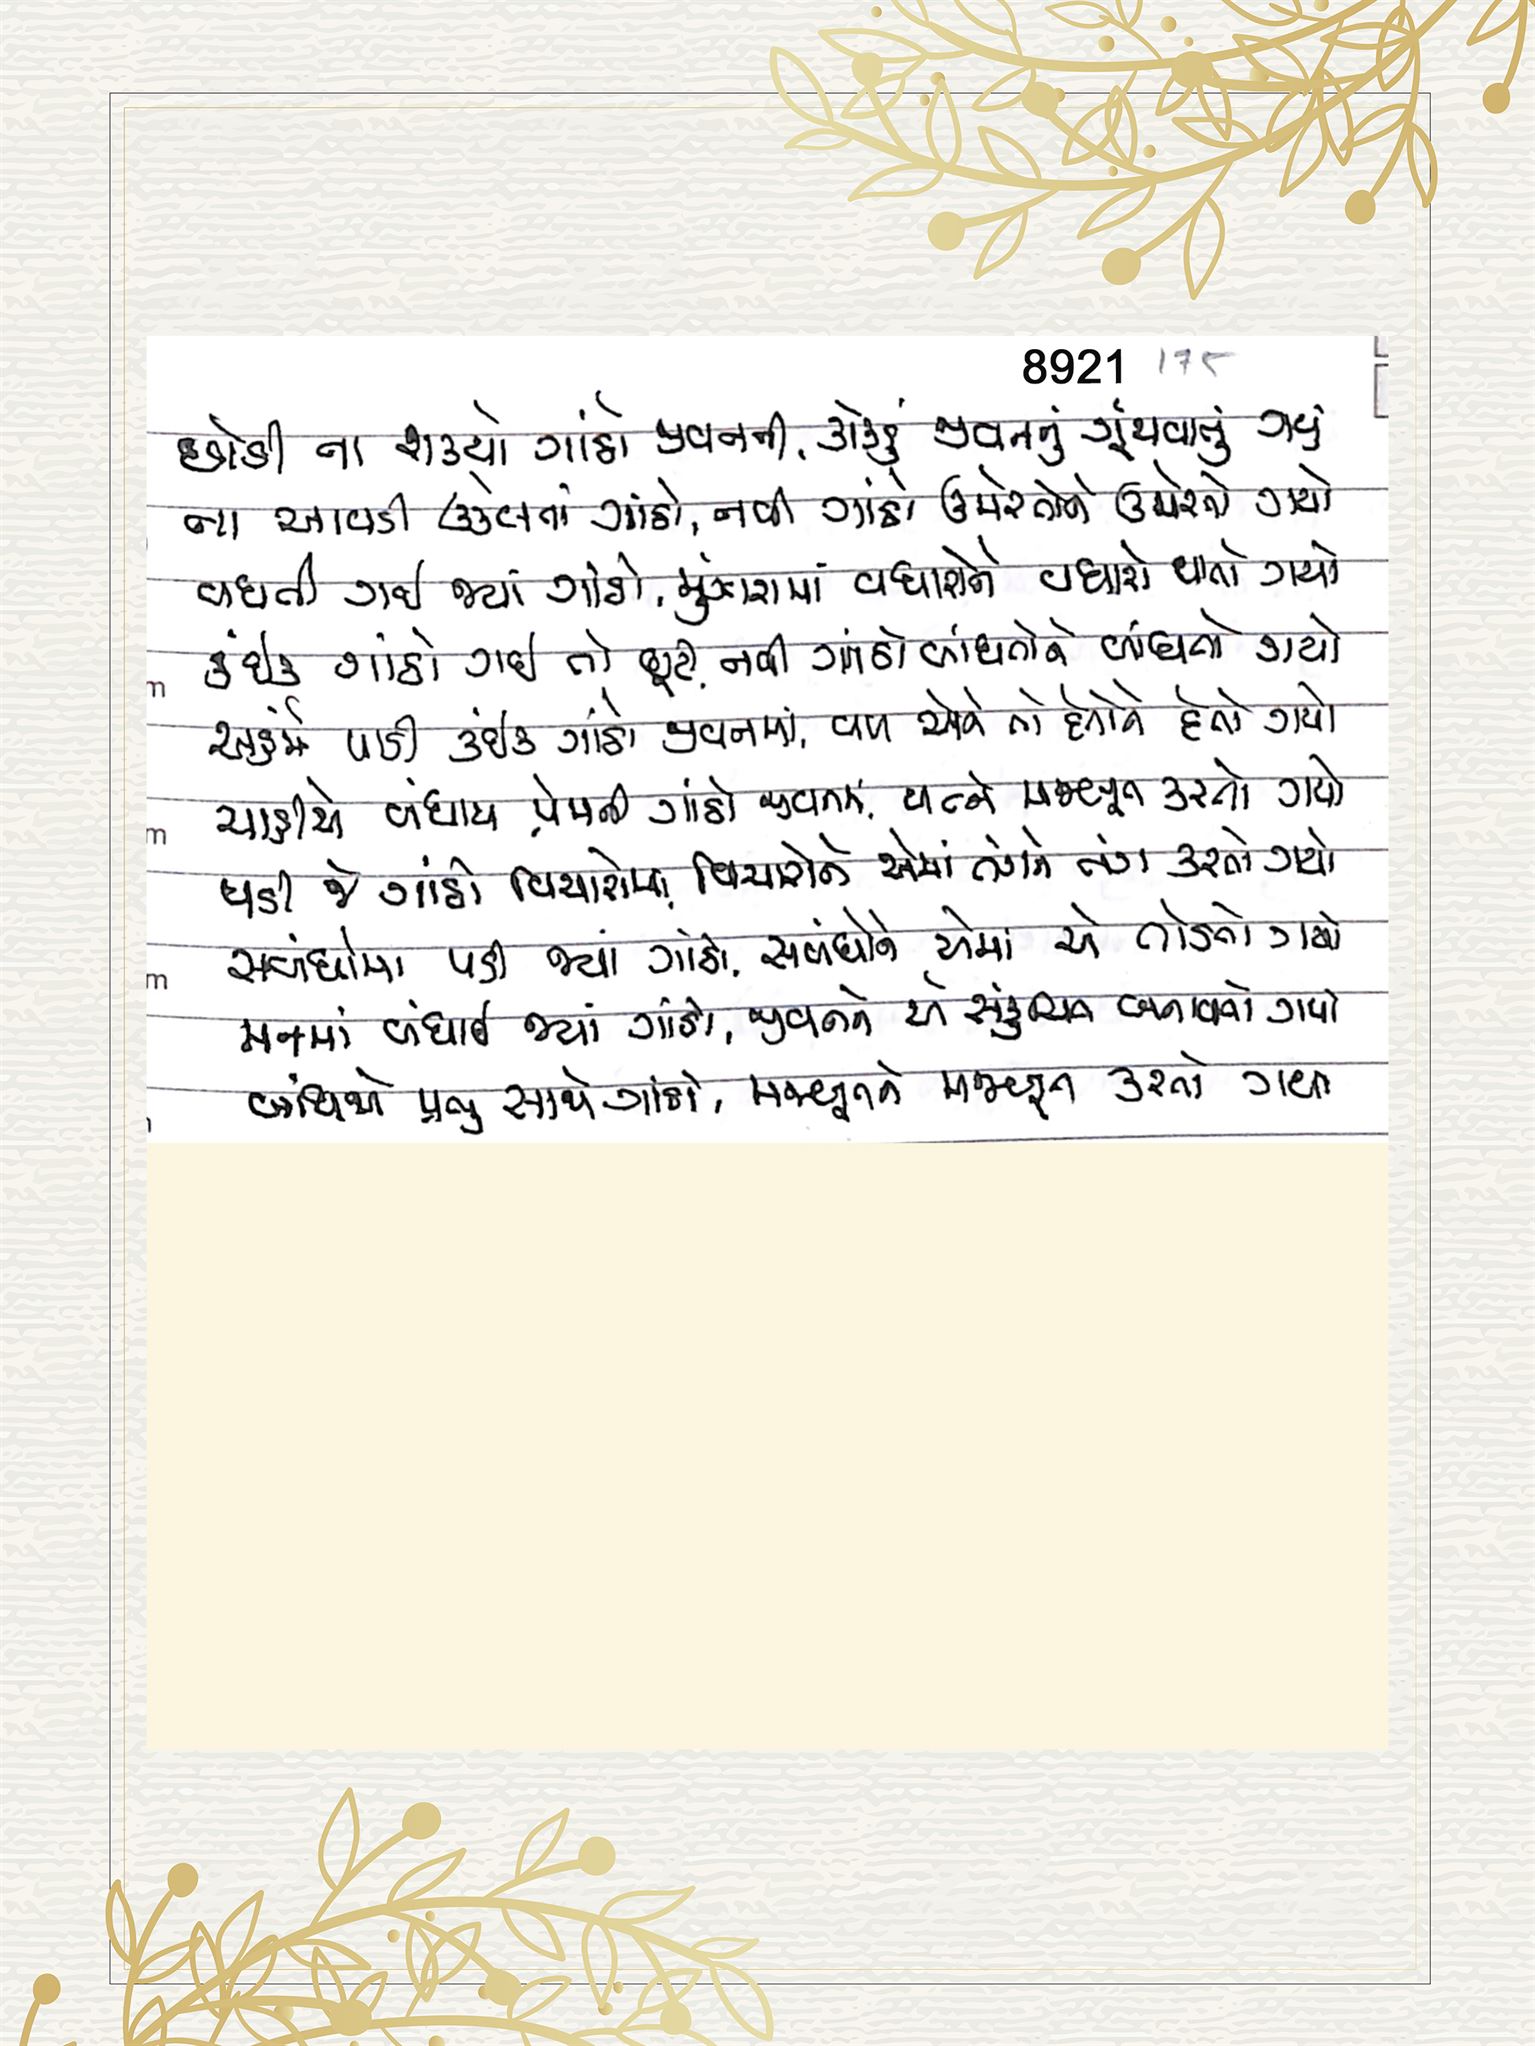 8921 175
છોડી ના શક્યો ગાંઠો જીવનની, કોકડું જીવનનું ગૂંથવાતું ગયું
ના આવડી ઉકેલતાં ગાંઠો, નવી ગાંઠો ઉમેરતોને ઉમેરતો ગયો
વધતી ગઈ જ્યાં ગાંઠો, મુંઝારામાં વધારોને વધારો થાતો ગયો
કંઈક ગાંઠો ગઈ તો છૂટી, નવી ગાંઠો બાંધતોને બાંધતો ગયો
અહંમે પાડી કંઈક ગાંઠો જીવનમાં, વળ એને તો દેતોને દેતો ગયો
ચાહીએ બંધાય પ્રેમની ગાંઠો જીવનમાં, યત્ને મજબૂત કરતો ગયો
પડી જે ગાંઠો વિચારોમાં, વિચારોને એમાં તંગને તંગ કરતો ગયો
સબંધોમાં પડી જ્યાં ગાંઠો, સબંધોને એમાં એ તોડતો ગયો
મનમાં બંધાઈ જ્યાં ગાંઠો, જીવનને એ સંકુચિત બનાવતો ગયો
બાંધિએ પ્રભુ સાથે ગાંઠો, મજબૂતને મજબૂત કરતો ગયો